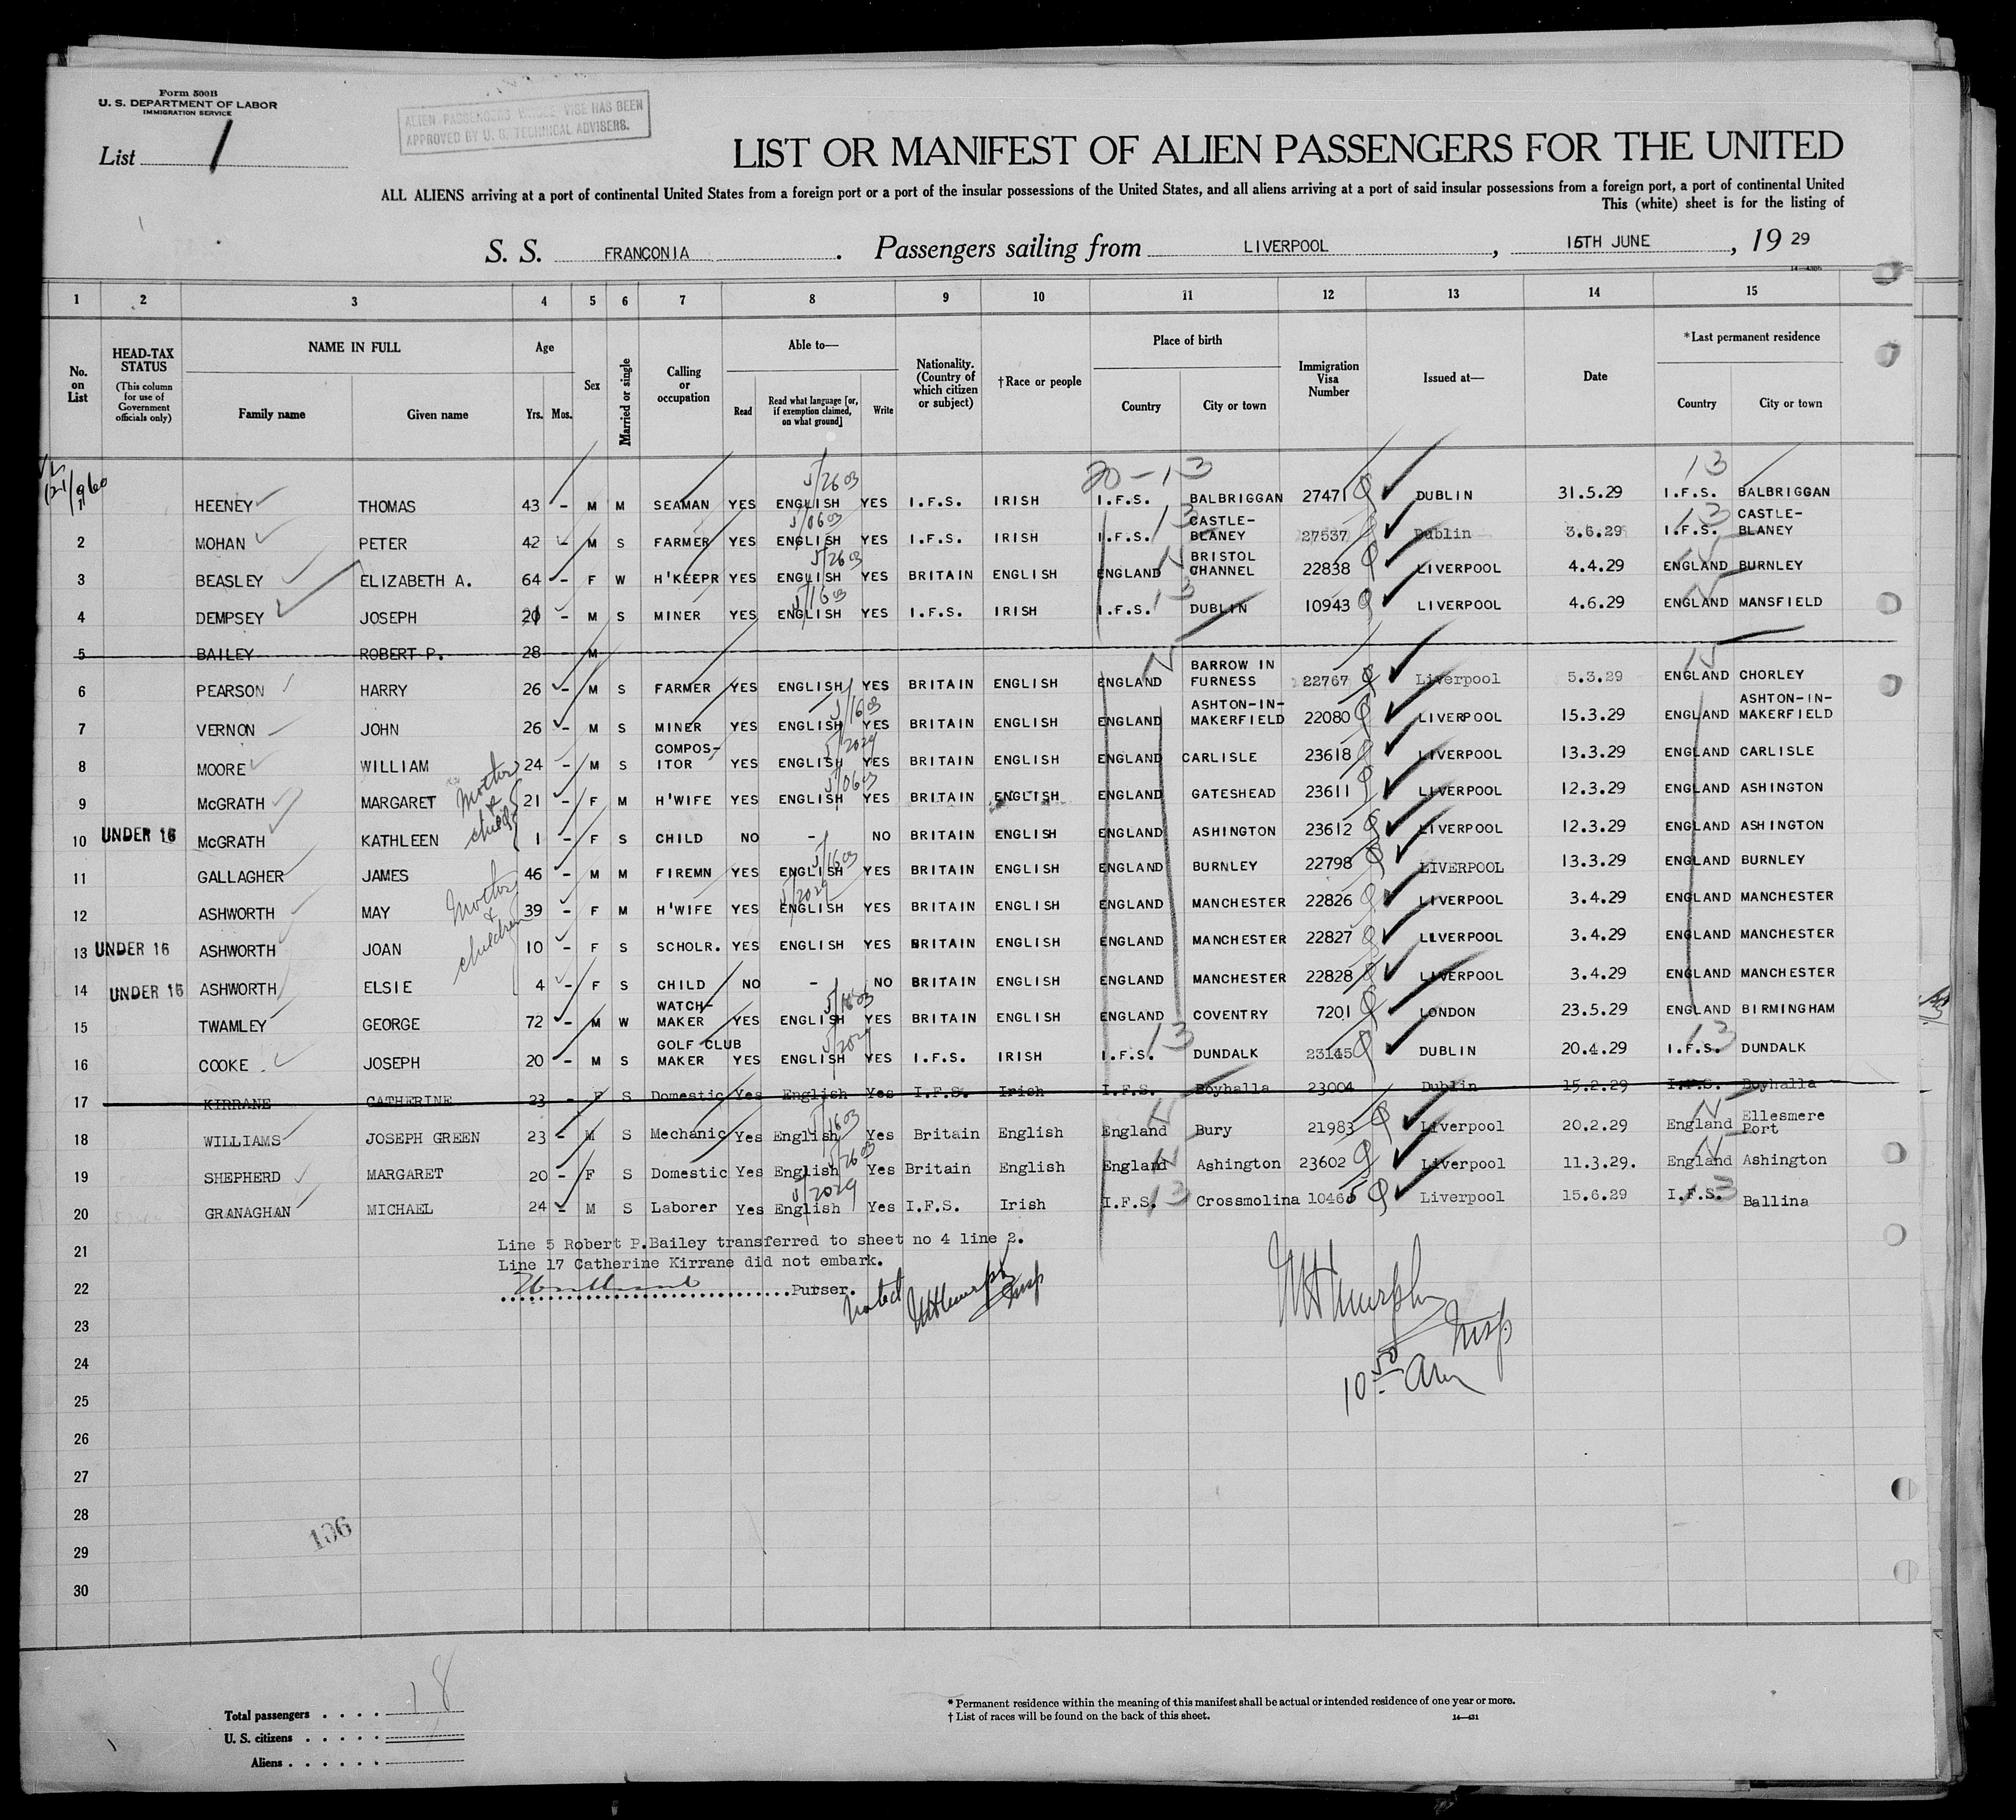 Form 500B
U. S. DEPARTMENT OF LABOR
IMMIGRATION SERVICE
ALIEN PASSENGERS WHOSE VISE HAS BEEN
APPROVED BY U. S. TECHNICAL ADVISERS.
List 1
LIST OR MANIFEST OF ALIEN PASSENGERS FOR THE UNITED
ALL ALIENS arriving at a port of continental United States from a foreign port or a port of the insular possessions of the United States, and all aliens arriving at a port of said insular possessions from a foreign port, a port of continental United
This (white) sheet is for the listing of
S. S. FRANCONIA . Passengers sailing from LIVERPOOL , 15TH JUNE , 19 29
1 2 3 4 5 6 7 8 9 10 11 12 13 14 15
No. on List
HEAD-TAX STATUS (This column for use of Government officials only)
NAME IN FULL Family name Given name
Age Yrs. Mos.
Sex
Married or single
Calling or occupation
Able to— Read Read what language [or, if exemption claimed, on what ground] Write
Nationality. (Country of which citizen or subject)
†Race or people
Place of birth Country City or town
Immigration Visa Number
Issued at—
Date
*Last permanent residence Country City or town
HEENEY THOMAS 43 - M M SEAMAN YES ENGLISH YES I.F.S. IRISH I.F.S. BALBRIGGAN 27471 DUBLIN 31.5.29 I.F.S. BALBRIGGAN
2 MOHAN PETER 42 - M S FARMER YES ENGLISH YES I.F.S. IRISH I.F.S. CASTLE-BLANEY 27537 Dublin 3.6.29 I.F.S. CASTLE-BLANEY
3 BEASLEY ELIZABETH A. 64 - F W H'KEEPR YES ENGLISH YES BRITAIN ENGLISH ENGLAND BRISTOL CHANNEL 22838 LIVERPOOL 4.4.29 ENGLAND BURNLEY
4 DEMPSEY JOSEPH - M S MINER YES ENGLISH YES I.F.S. IRISH I.F.S. DUBLIN 10943 LIVERPOOL 4.6.29 ENGLAND MANSFIELD
5 BAILEY ROBERT P. 28 M
6 PEARSON HARRY 26 - M S FARMER YES ENGLISH YES BRITAIN ENGLISH ENGLAND BARROW IN FURNESS 22767 Liverpool 5.3.29 ENGLAND CHORLEY
7 VERNON JOHN 26 - M S MINER YES ENGLISH YES BRITAIN ENGLISH ENGLAND ASHTON-IN-MAKERFIELD 22080 LIVERPOOL 15.3.29 ENGLAND ASHTON-IN-MAKERFIELD
8 MOORE WILLIAM 24 - M S COMPOS-ITOR YES ENGLISH YES BRITAIN ENGLISH ENGLAND CARLISLE 23618 LIVERPOOL 13.3.29 ENGLAND CARLISLE
9 McGRATH MARGARET 21 - F M H'WIFE YES ENGLISH YES BRITAIN ENGLISH ENGLAND GATESHEAD 23611 LIVERPOOL 12.3.29 ENGLAND ASHINGTON
Mother & child
10 UNDER 16 McGRATH KATHLEEN 1 - F S CHILD NO - NO BRITAIN ENGLISH ENGLAND ASHINGTON 23612 LIVERPOOL 12.3.29 ENGLAND ASHINGTON
11 GALLAGHER JAMES 46 - M M FIREMN YES ENGLISH YES BRITAIN ENGLISH ENGLAND BURNLEY 22798 LIVERPOOL 13.3.29 ENGLAND BURNLEY
12 ASHWORTH MAY 39 - F M H'WIFE YES ENGLISH YES BRITAIN ENGLISH ENGLAND MANCHESTER 22826 LIVERPOOL 3.4.29 ENGLAND MANCHESTER
Mother & children
13 UNDER 16 ASHWORTH JOAN 10 - F S SCHOLR. YES ENGLISH YES BRITAIN ENGLISH ENGLAND MANCHESTER 22827 LIVERPOOL 3.4.29 ENGLAND MANCHESTER
14 UNDER 16 ASHWORTH ELSIE 4 - F S CHILD NO - NO BRITAIN ENGLISH ENGLAND MANCHESTER 22828 LIVERPOOL 3.4.29 ENGLAND MANCHESTER
15 TWAMLEY GEORGE 72 - M W WATCH-MAKER YES ENGLISH YES BRITAIN ENGLISH ENGLAND COVENTRY 7201 LONDON 23.5.29 ENGLAND BIRMINGHAM
16 COOKE JOSEPH 20 - M S GOLF CLUB MAKER YES ENGLISH YES I.F.S. IRISH I.F.S. DUNDALK 23145 DUBLIN 20.4.29 I.F.S. DUNDALK
17 KIRRANE CATHERINE 23 - F S Domestic Yes English Yes I.F.S. Irish I.F.S. Boyhalla 23004 Dublin 15.2.29 I.F.S. Boyhalla
18 WILLIAMS JOSEPH GREEN 23 - M S Mechanic Yes English Yes Britain English England Bury 21983 Liverpool 20.2.29 England Ellesmere Port
19 SHEPHERD MARGARET 20 - F S Domestic Yes English Yes Britain English England Ashington 23602 Liverpool 11.3.29. England Ashington
20 GRANAGHAN MICHAEL 24 - M S Laborer Yes English Yes I.F.S. Irish I.F.S. Crossmolina 10465 Liverpool 15.6.29 I.F.S. Ballina
21 Line 5 Robert P.Bailey transferred to sheet no 4 line 2.
Line 17 Catherine Kirrane did not embark.
22 Purser. Noted MHMurphy Insp
MHMurphy Insp
10 50 Am
23
24
25
26
27
28
29
30
106
Total passengers . . . . 18
U. S. citizens . . . . .
Aliens . . . . . .
* Permanent residence within the meaning of this manifest shall be actual or intended residence of one year or more.
† List of races will be found on the back of this sheet.
14—431